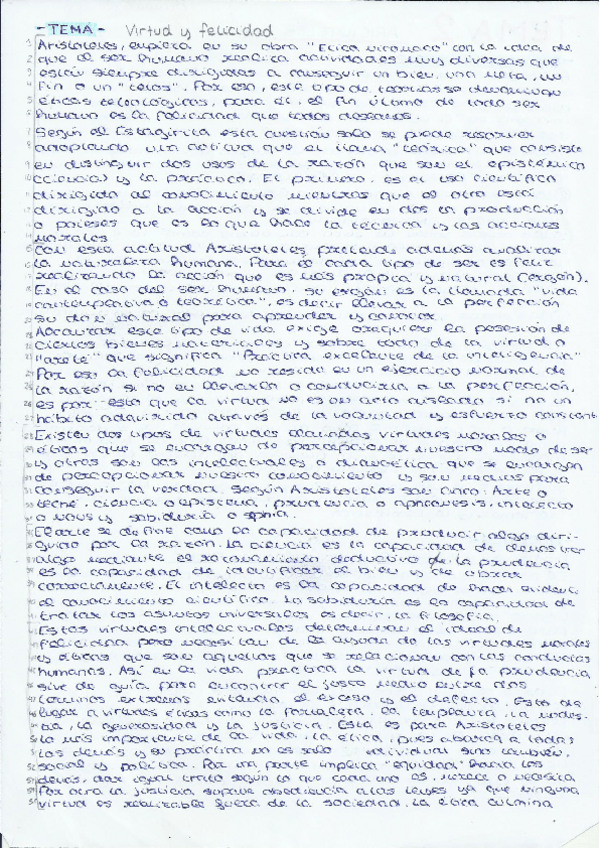 -TEMA- Virtud y felicidad
Aristóteles, empieza en su obra "Ética nicomaco" con la idea de
que el ser humano realiza actividades muy diversas que
están siempre dirigidas a conseguir un bien, una meta, un
fin o un "telos". Por eso, este tipo de teorías se denominan
éticas teleológicas, para él, el fin último de todo ser
humano es la felicidad que todos deseamos.
Según el Estagirita esta cuestión solo se puede resolver
adoptando una actitud que el llama "teórica" que consiste
en distinguir dos usos de la razón que son el epistémico
(ciencia) y la práctica. El primero, es el uso científico
dirigido al conocimiento mientras que el otro está
dirigido a la acción y se divide en dos en producción
o poieses que es en que hace la técnica y las acciones
morales
Con esta actitud Aristóteles pretende además analizar
la naturaleza humana. Para él cada tipo de ser es feliz
realizando la acción que es más propia y natural (ergón).
En el caso del ser humano, su ergón es la llamada "vida
contemplativa o teorética", es decir llevar a la perfección
su don natural para aprender y conocer.
Alcanzar este tipo de vida exige adquirir la posesión de
ciertos bienes materiales y sobre todo de la virtud o
"areté" que significa "Práctica excelente de la inteligencia"
Por eso la felicidad no reside en un ejercicio normal de
la razón si no en llevarla o conducirla a la perfección,
es por esto que la virtud no es un acto aislado si no un
hábito adquirido através de la voluntad y esfuerzo constant
Existen dos tipos de virtudes llamadas virtudes morales o
éticas que se encargan de perfeccionar nuestro modo de ser
y otras son las intelectuales o dianoética que se encargan
de perfeccionar nuestro conocimiento y son medios para
conseguir la verdad. Según Aristóteles son cinco: Arte o
teché, ciencia o episteme, prudencia o phronesis, intelecto
o nous y sabiduría o sophia.
El arte se define como la capacidad de producir algo diri-
guido por la razón. La ciencia es la capacidad de demostrar
algo mediante el razonamiento deductivo de la prudencia
es la capacidad de identificar el bien y de obrar
correctamente. El intelecto es la capacidad de hacer evidente
el conocimiento científico. La sabiduría es la capacidad de
tratar los asuntos universales es decir, la filosofía.
Estas virtudes intelectuales determinan el ideal de
felicidad pero necesitan de la ayuda de las virtudes morales
y éticas que son aquellas que se relacionan con las conductas
humanas. Así en la vida práctica la virtud de la prudencia
sirve de guía para encontrar el justo medio entre dos
términos extremos evitando el exceso y el defecto. Esto da
lugar a virtudes éticas como la fortaleza, la templanza, la modes-
tia, la generosidad y la justicia. Ésta es para Aristóteles
la más importante de la vida, la ética, pues abarca a todas
las demás y su práctica no es solo individual sino también,
social y política. Por una parte implica "equidad" hacia los
demás, dar igual trato según lo que cada uno es, merece o necesita
Por otro la justicia supone obediencia a las leyes ya que ninguna
virtud es realizable fuera de la sociedad. La ética culmina